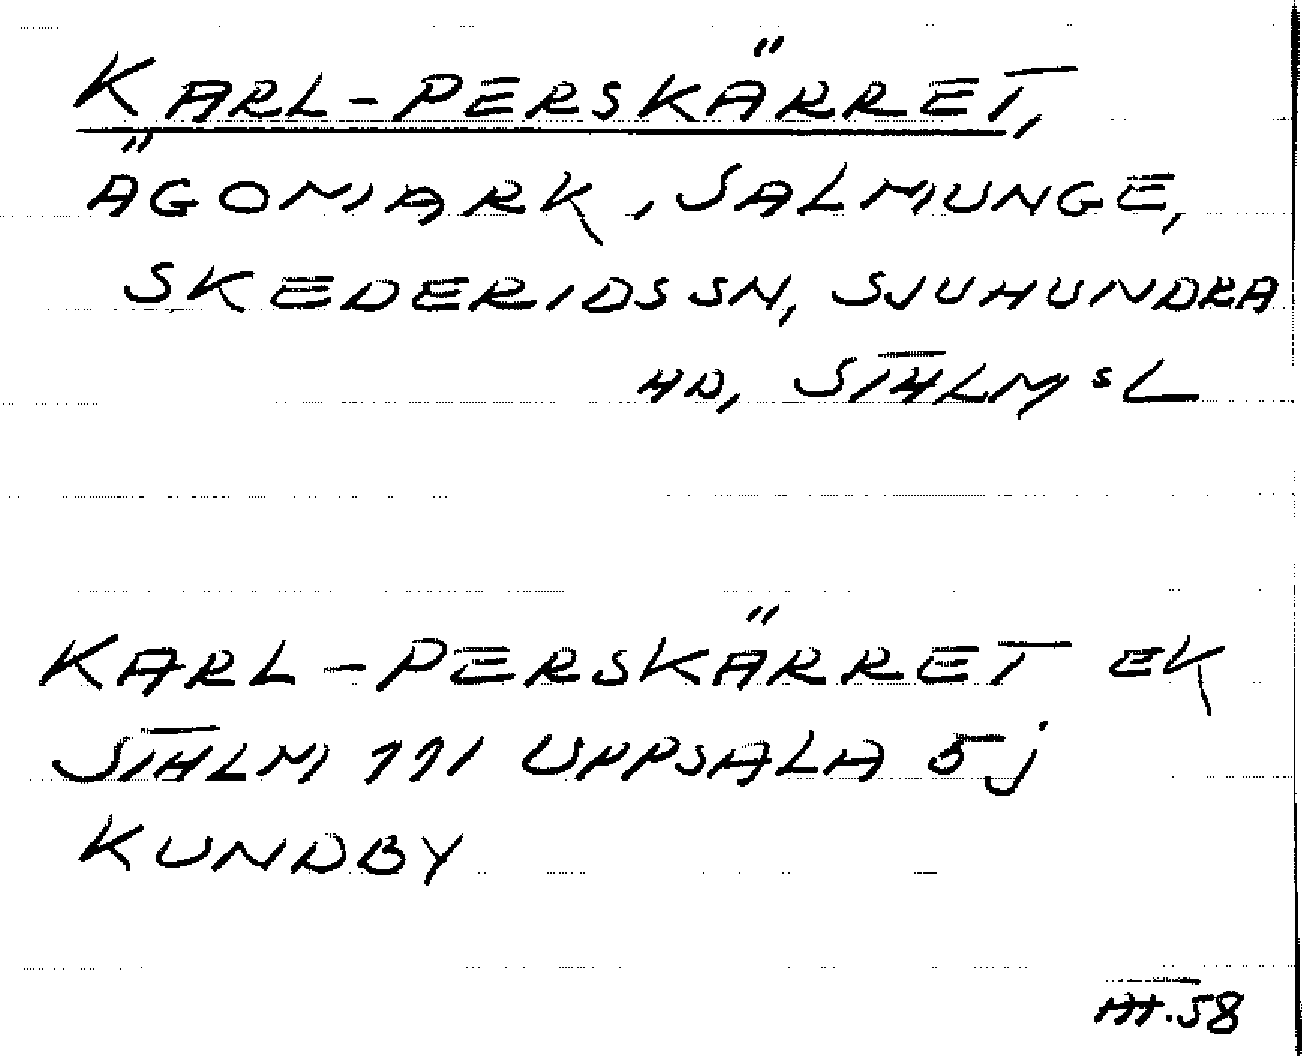 KARL-PERSKÄRRET,
ÄGOMARK, SALMUNGE,
SKEDERIDS SN, SJUHUNDRA
HD, STHLMS L
KARL-PERSKÄRRET EK
STHLM 111 UPPSALA 5j
KUNDBY